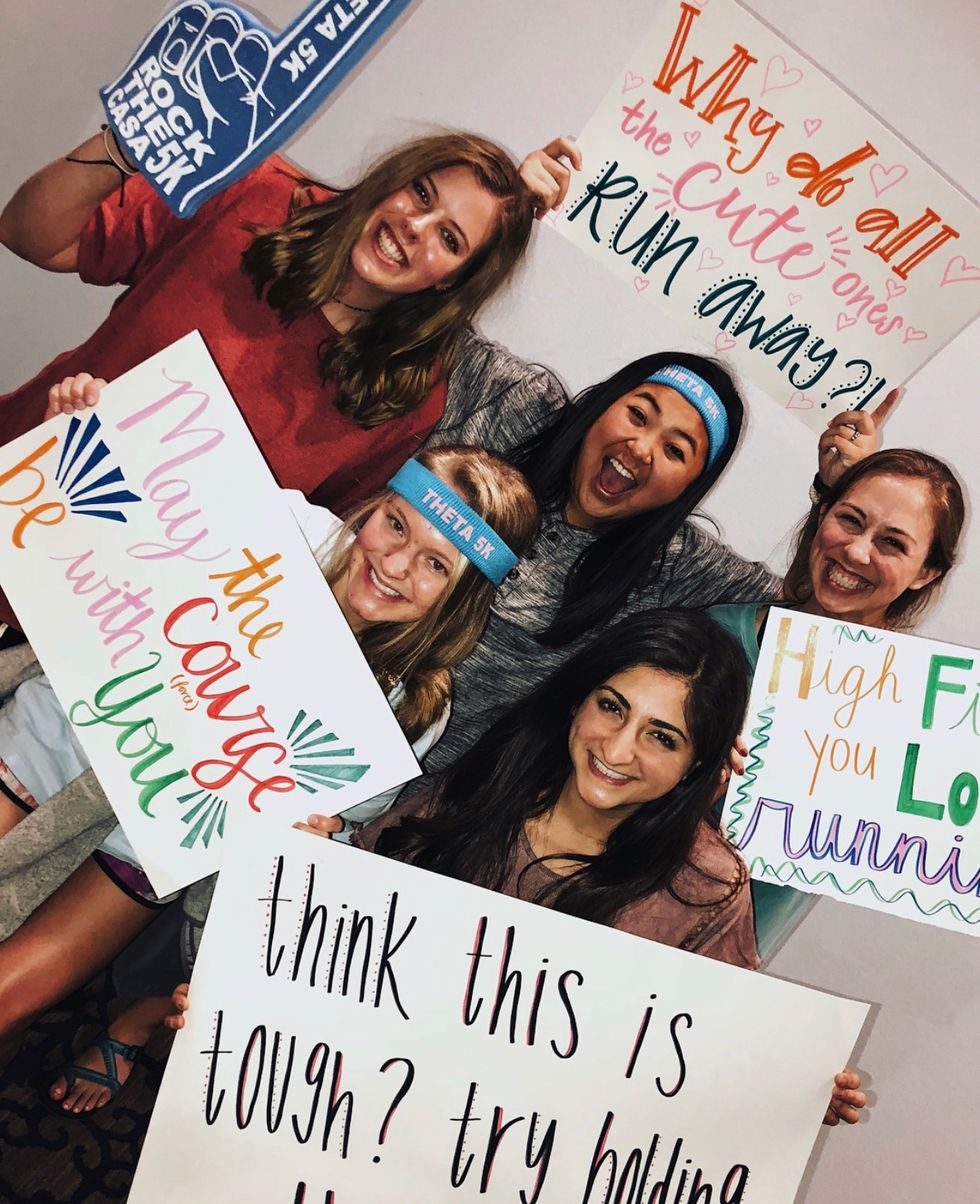 ROCK
THE 5K
CASA 5K
ETA 5K
Why do all
the cute ones
RUN away?!
THETA 5K
THETA 5K
May the
Course
(force)
be with you
High
you
think this is
tough? try holding